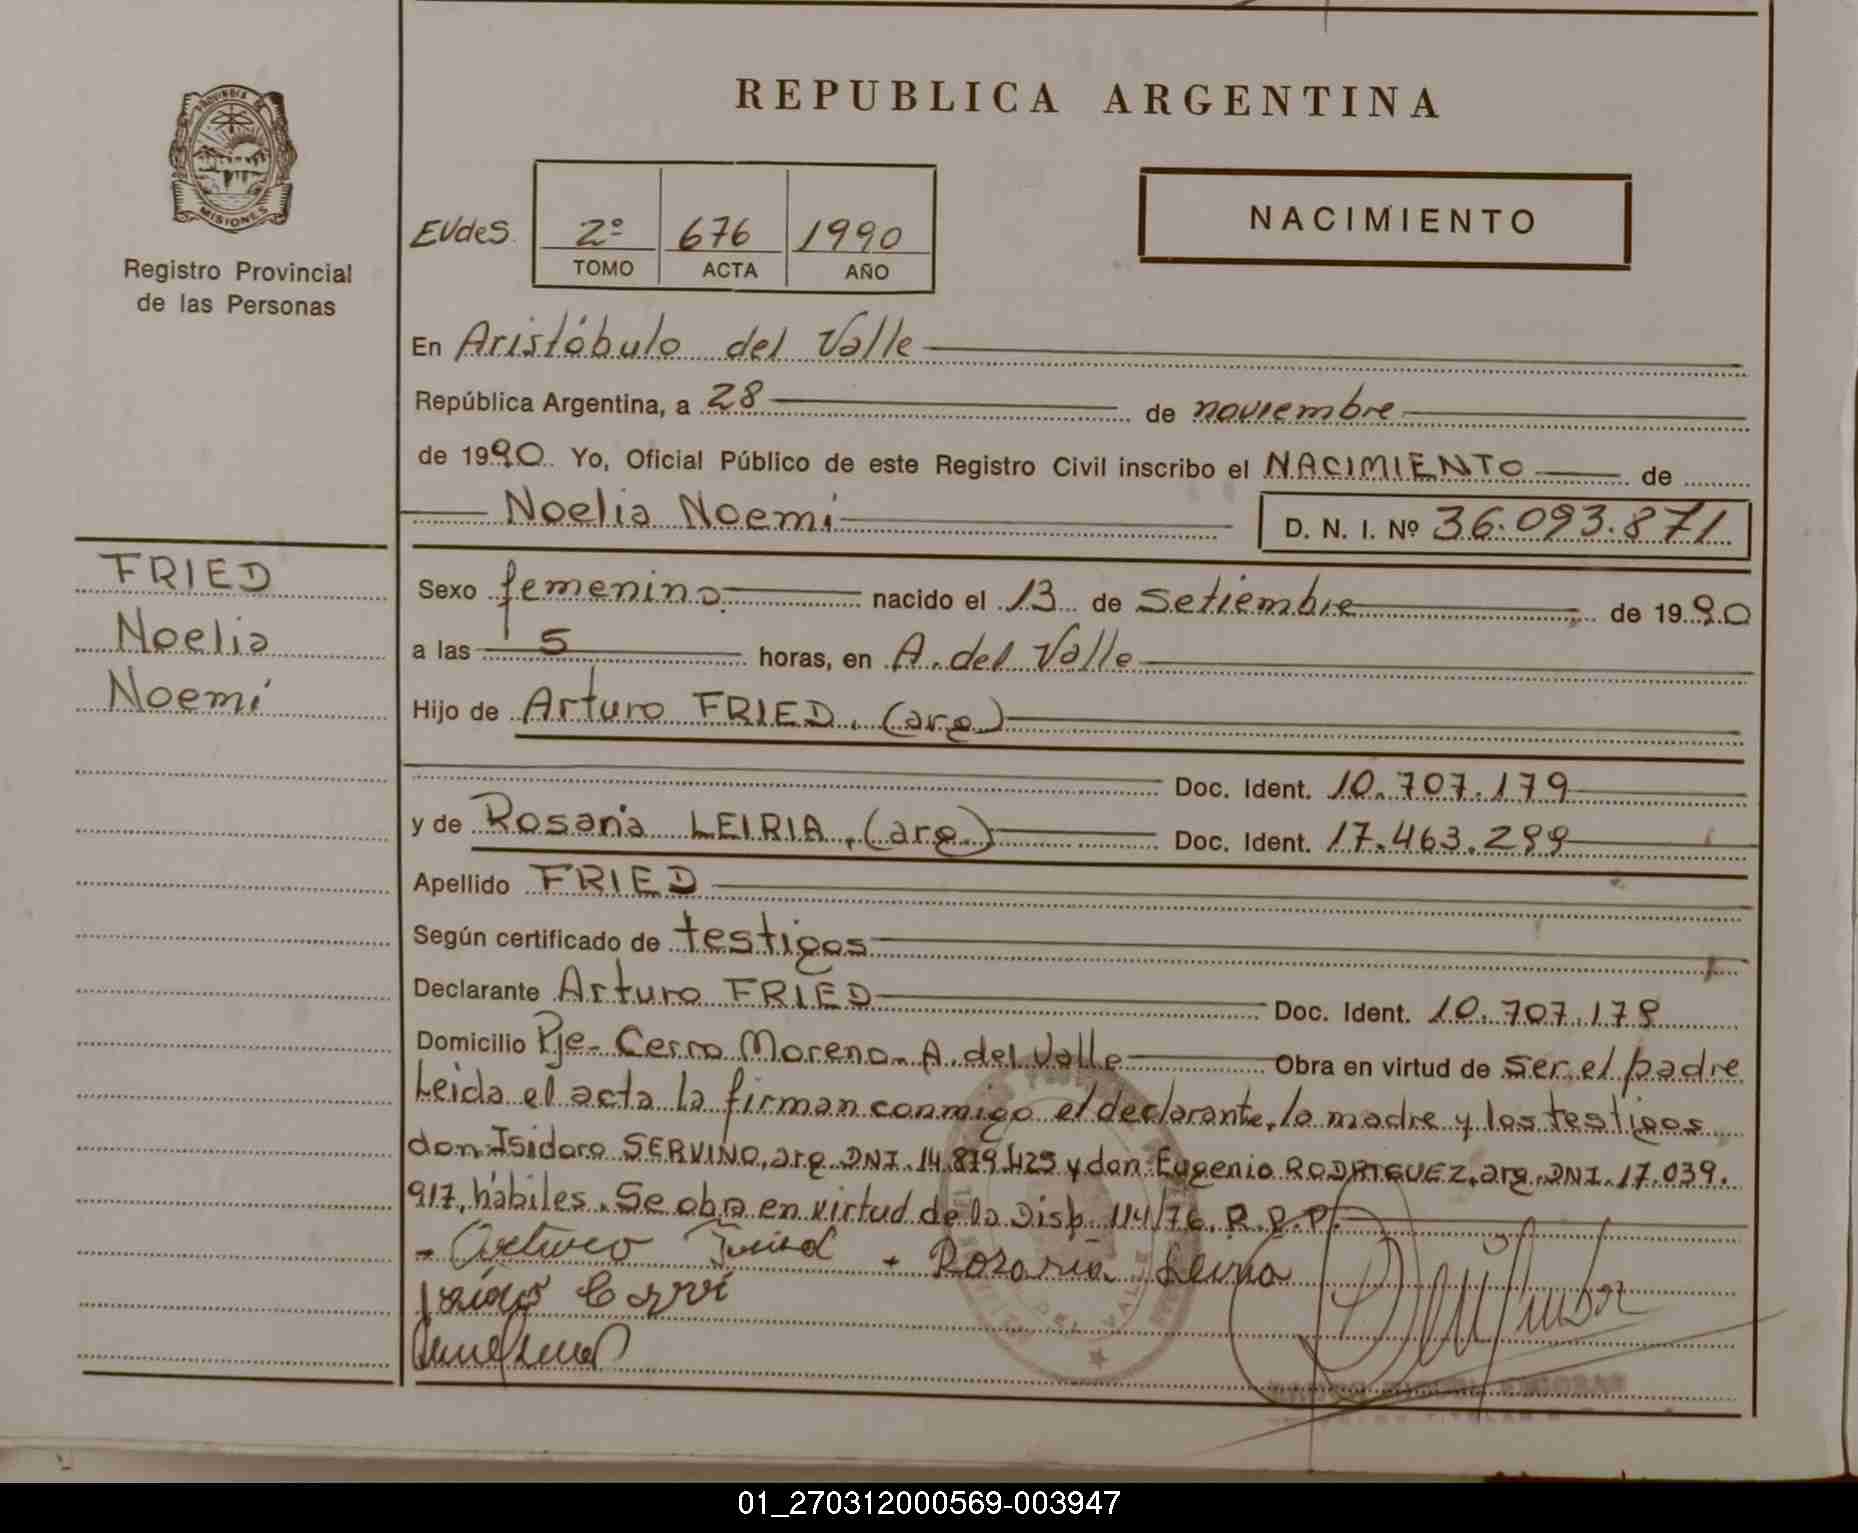 REPUBLICA ARGENTINA
PROVINCIA DE
MISIONES
Registro Provincial
de las Personas
EVdeS 2º 676 1990
TOMO ACTA AÑO
NACIMIENTO
En Aristóbulo del Valle
República Argentina, a 28 de noviembre
de 1990 Yo, Oficial Público de este Registro Civil inscribo el NACIMIENTO de
Noelia Noemí D. N. I. Nº 36.093.871
FRIED
Noelia
Noemí
Sexo femenino nacido el 13 de Setiembre de 1990
a las 5 horas, en A. del Valle
Hijo de Arturo FRIED, (arg)
Doc. Ident. 10.707.179
y de Rosaria LEIRIA, (arg.) Doc. Ident. 17.463.299
Apellido FRIED
Según certificado de testigos
Declarante Arturo FRIED Doc. Ident. 10.707.179
Domicilio Pje- Cerro Moreno- A. del Valle Obra en virtud de ser el padre
Leida el acta la firman conmigo el declarante, la madre y los testigos
don Isidoro SERVINO, arg. DNI. 14.879.425 y don Eugenio RODRIGUEZ, arg. DNI. 17.039.
917, hábiles. Se obra en virtud de la Disp. 114/76. R.P.P.
- Arturo Fried - Rozaria Leiria
DEL VALLE
01_270312000569-003947